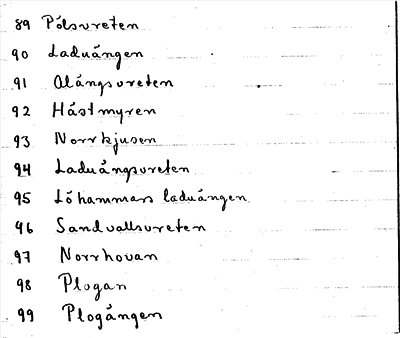 89 Pålsvreten
90 Laduängen
91 Alängsvreten
92 Hästmyren
93 Norrkjusen
94 Laduängsvreten
95 Löhammars laduängen
96 Sandvallsvreten
97 Norrhovan
98 Plogan
99 Plogängen